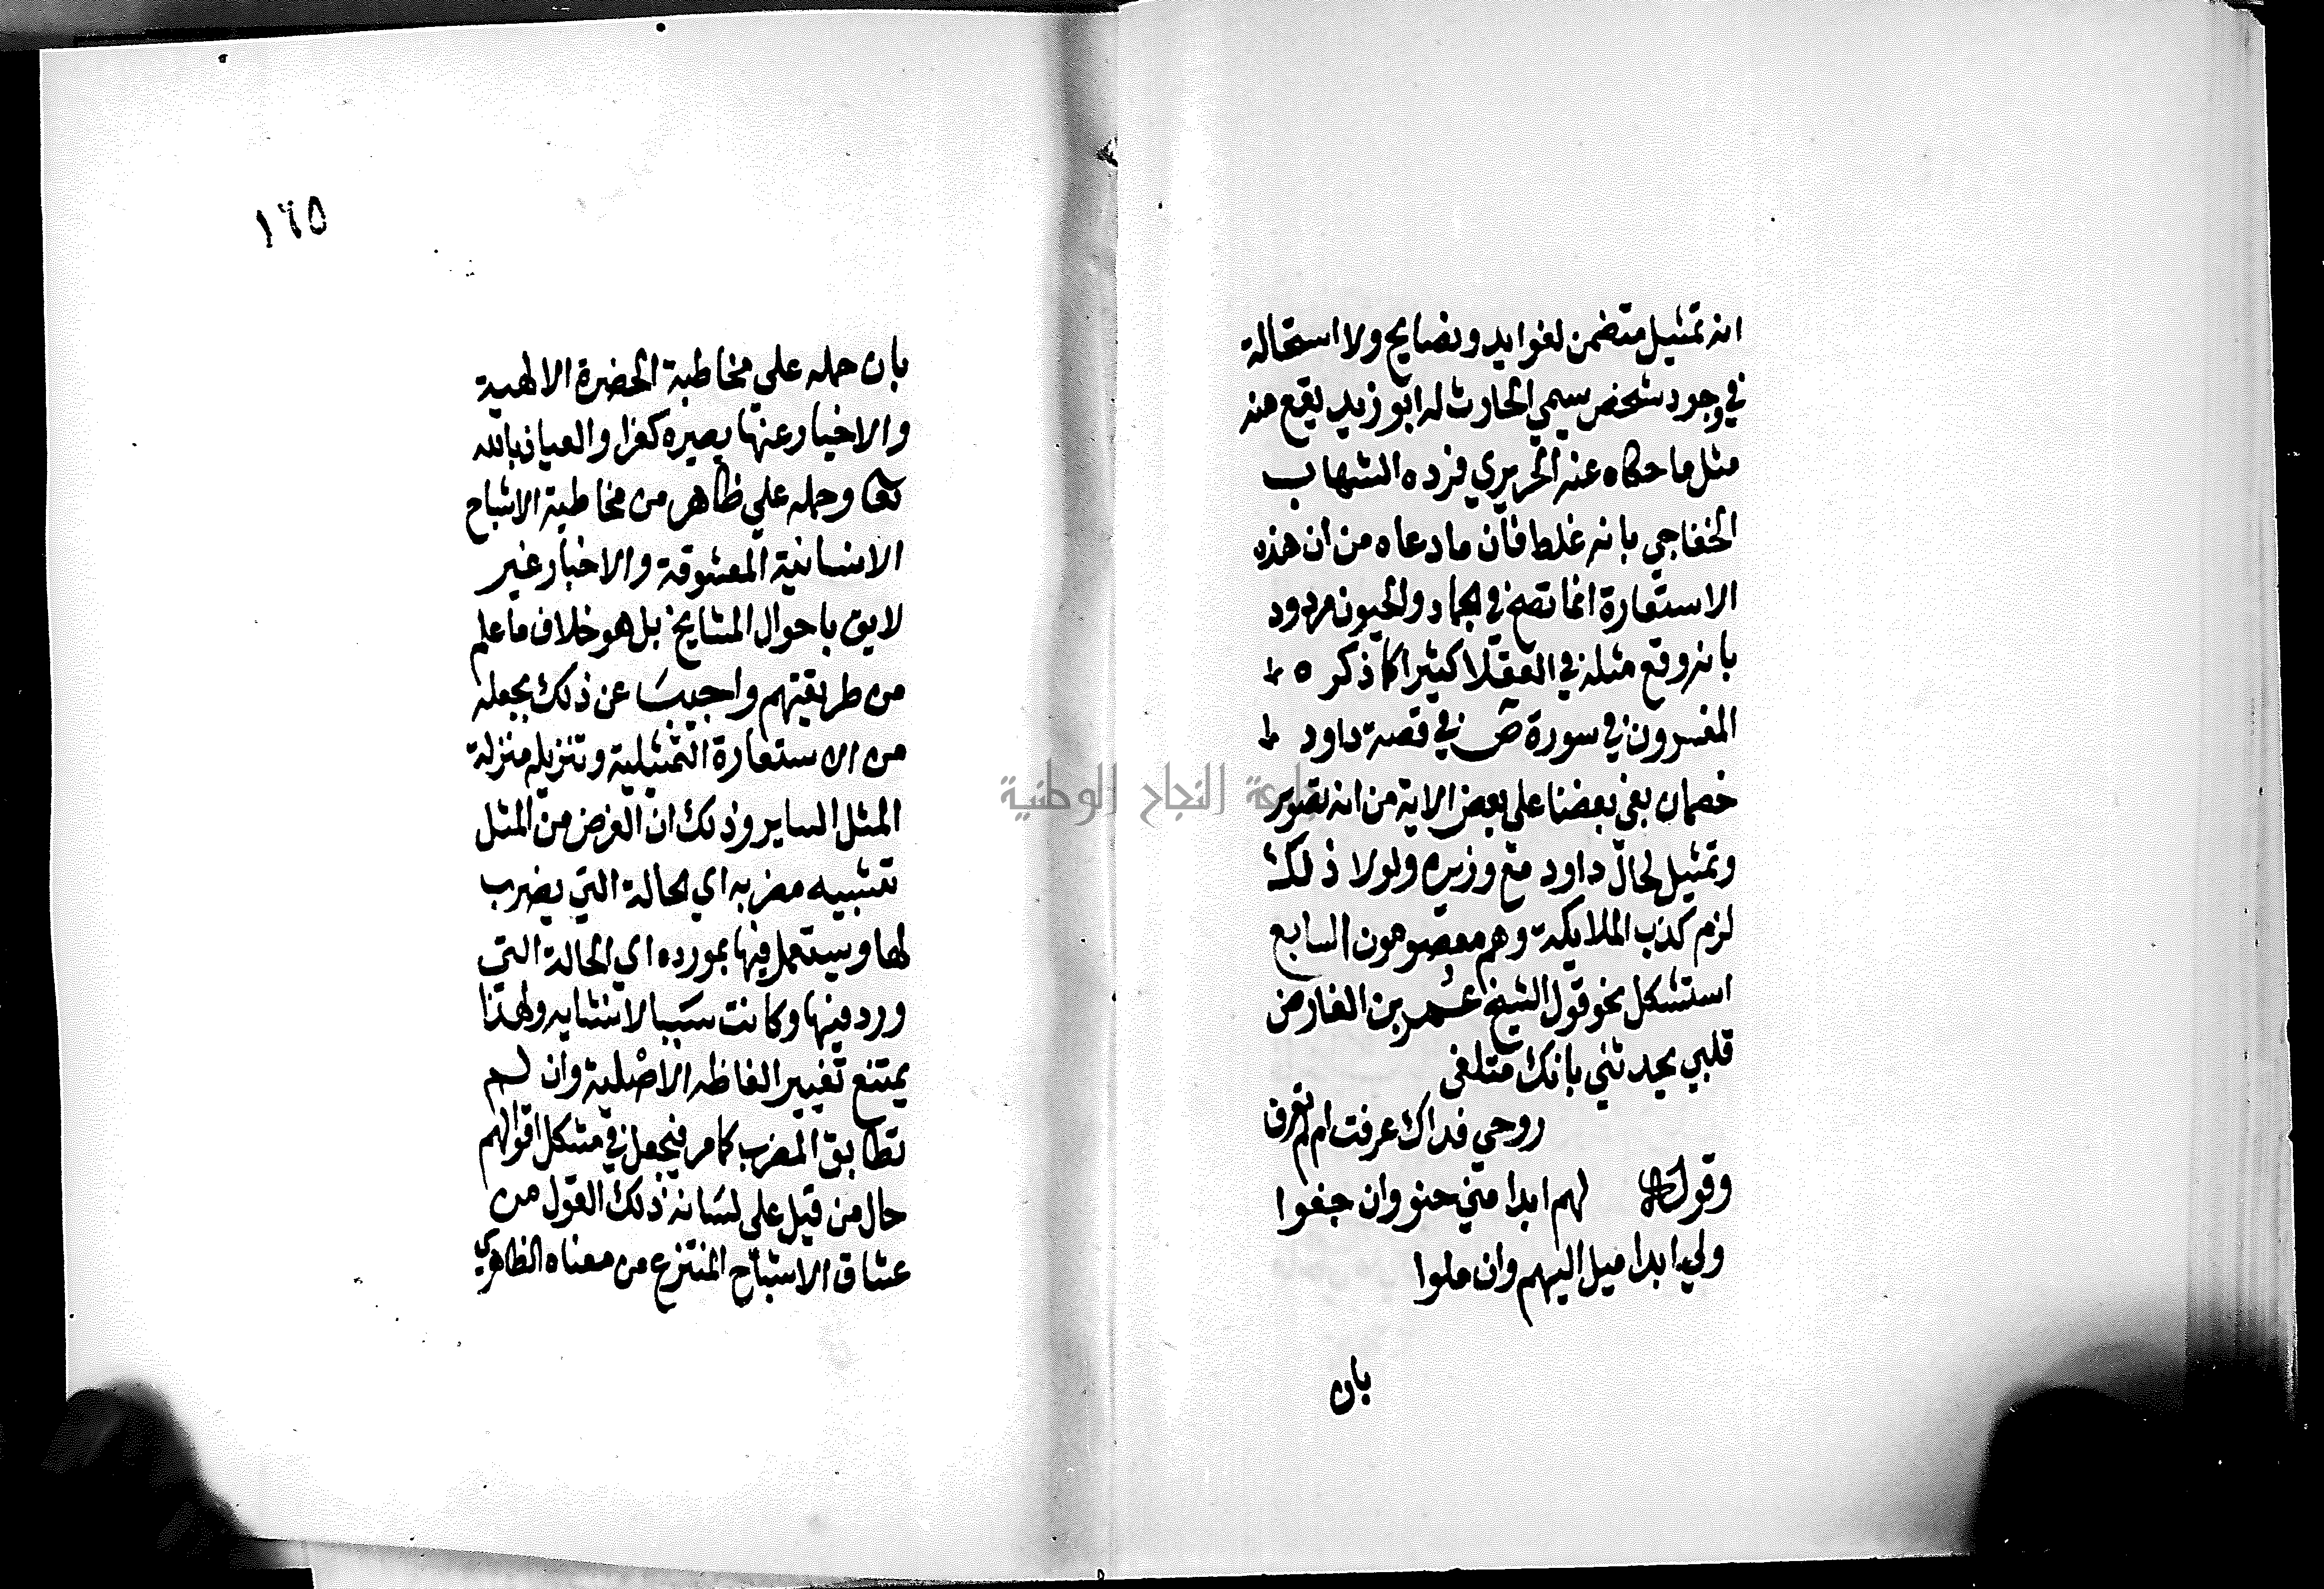 انه تمثيل متضمن لفوايد ونصايح ولا استحالة
في وجود شخص سيمي الحارث له ابو زيد يقع منه
مثل ما حكاه عنه الحريري فرده الشهاب
الخفاجي بانه غلط فان ما دعاه من ان هذه
الاستعارة انما تصح في الجماد والحيون مردود
بانه وقع مثله في العقلا كثيرا كما ذكره
المفسرون في سورة ص في قصة داود
خصمان بغى بعضنا على بعض الاية من انه تصوير
وتمثيل لحال داود مع وزيره ولولا ذلك
لزم كذب الملايكة وهم معصومون السابع
استشكل نحو قول الشيخ عمر بن الفارض
قلبي يحدثني بانك متلفى
روحي فداك عرفت ام لم تعرف
وقوله لهم ابدا مني حنو وان جفوا
ولي ابدا ميل اليهم وان ملوا
بان
١٦٥
بان حمله على مخاطبة الحضرة الالهية
والاخبار عنها يصيره كفرا والعياذ بالله
تعا وحمله علي ظاهر من مخاطبة الاشباح
الانسانية المعشوقة والاخبار غير
لايق باحوال المشايخ بل هو خلاف ما علم
من طريقتهم واجيب عن ذلك بجعله
من الاستعارة التمثيلية وتنزيله منزلة
المثل الساير وذلك ان الغرض من المثل
تشبيه مضربه اي الحالة التي يضرب
لها وسيتعمل فيها بمورده اي الحالة التي
ورد فيها وكانت سببا لانشايه ولهذا
يمتنع تغيير الفاظه الاصلية وان لم
تطابق المضرب كما مر فيجعل في مشكل اقوالهم
حال من قيل على لسانه ذلك القول من
عشاق الاشباح المنتزع من معناه الظاهري
جامعة النجاح الوطنية